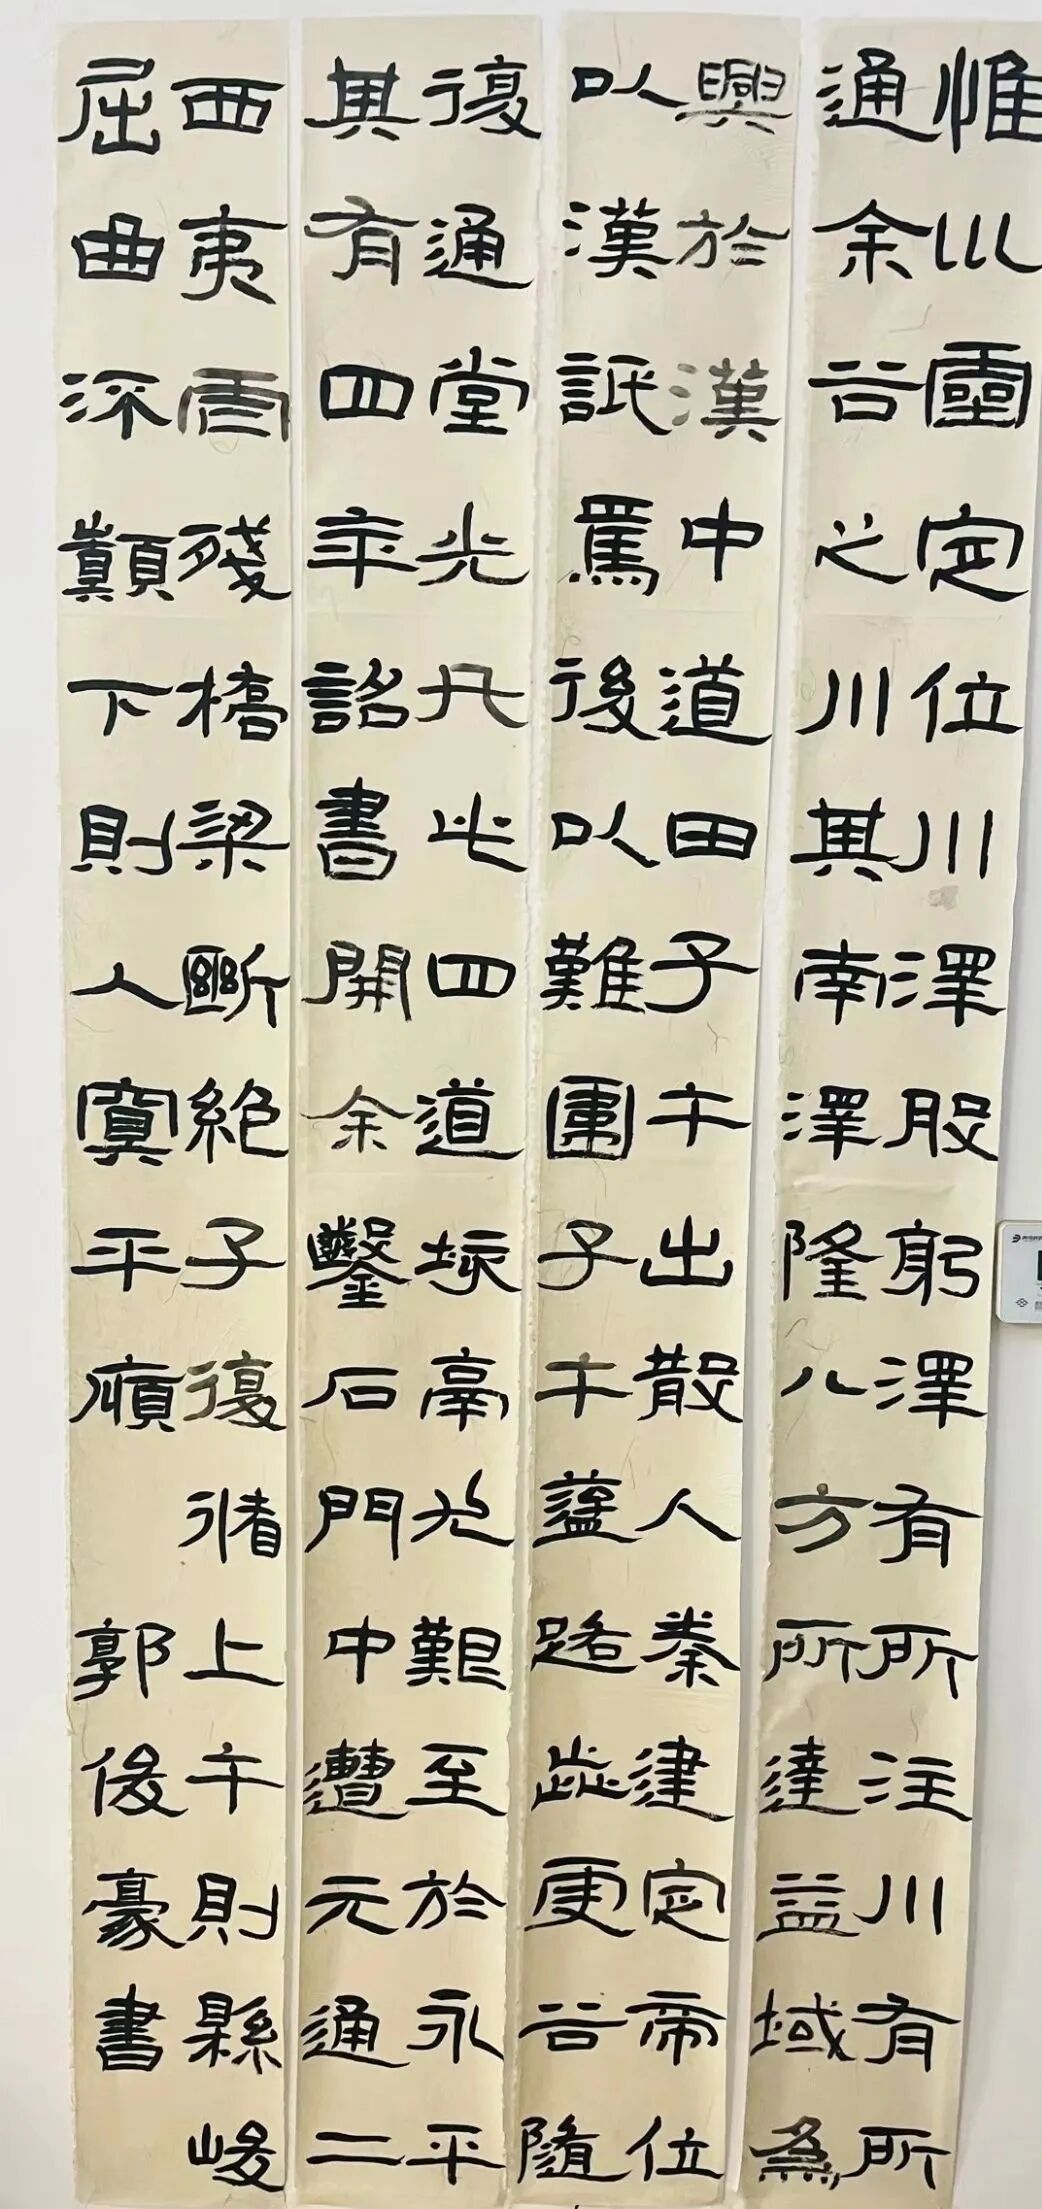 惟巛靈定位川澤股躬澤有所注川有所
通余谷之川其南澤隆八方所達益域為
興於漢中道田子午出散入秦建定帝位
以漢詆焉後以難圍子午路歰更谷隨
復通堂光凡此四道垓鬲尤艱至於永平
其有四年詔書開余鑿石門中遭元通二
西夷虐殘橋梁斷絕子復循上午則縣峻
屈曲流顛下則入冥平廎
郭俊豪書